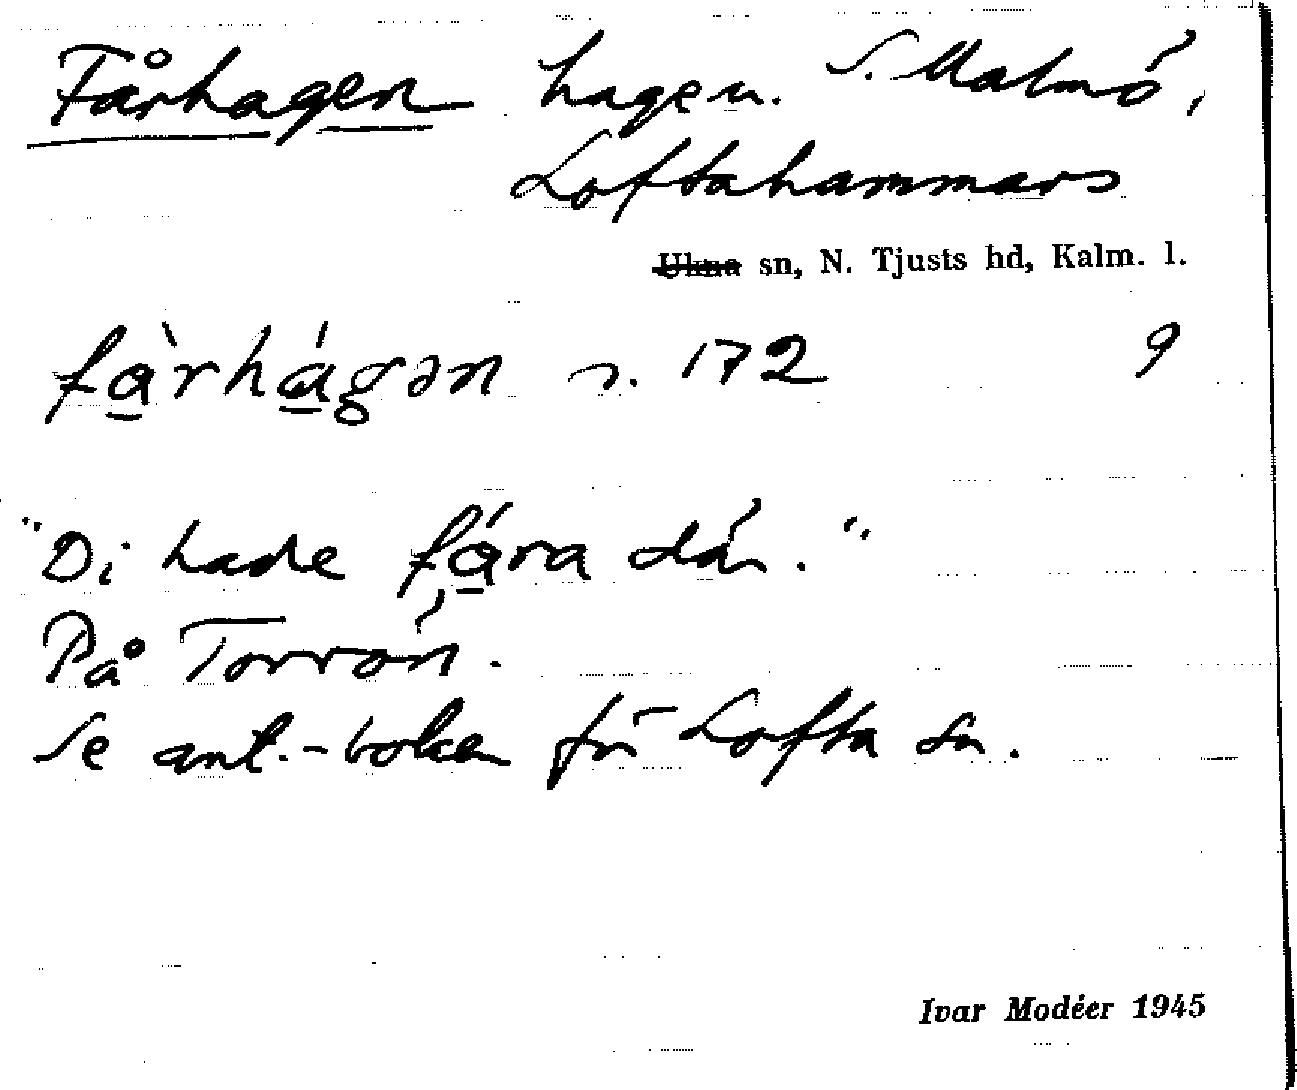 Fårhagen hagen. S. Malmö,
Loftahammars
Ukna sn, N. Tjusts hd, Kalm. l.
fà̲rhá̲gən s. 172 9
"Di hade fá̲ra där."
På Torrön.
Se ant.-boken för Lofta sn.
Ivar Modéer 1945